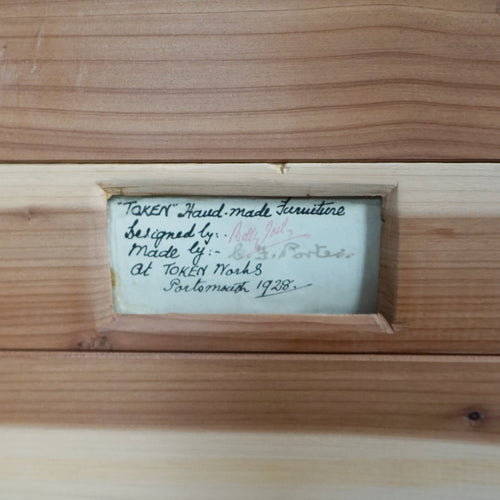 "TOKEN" Hand-made Furniture
Designed by:- Betty Joel
Made by:- G. Porter.
at TOKEN Works
Portsmouth 1928.